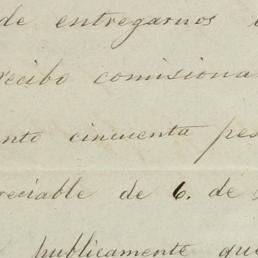 de entregarnos
recibo comisiona
nto cincuenta pes
reciable de 6. de
publicamente que